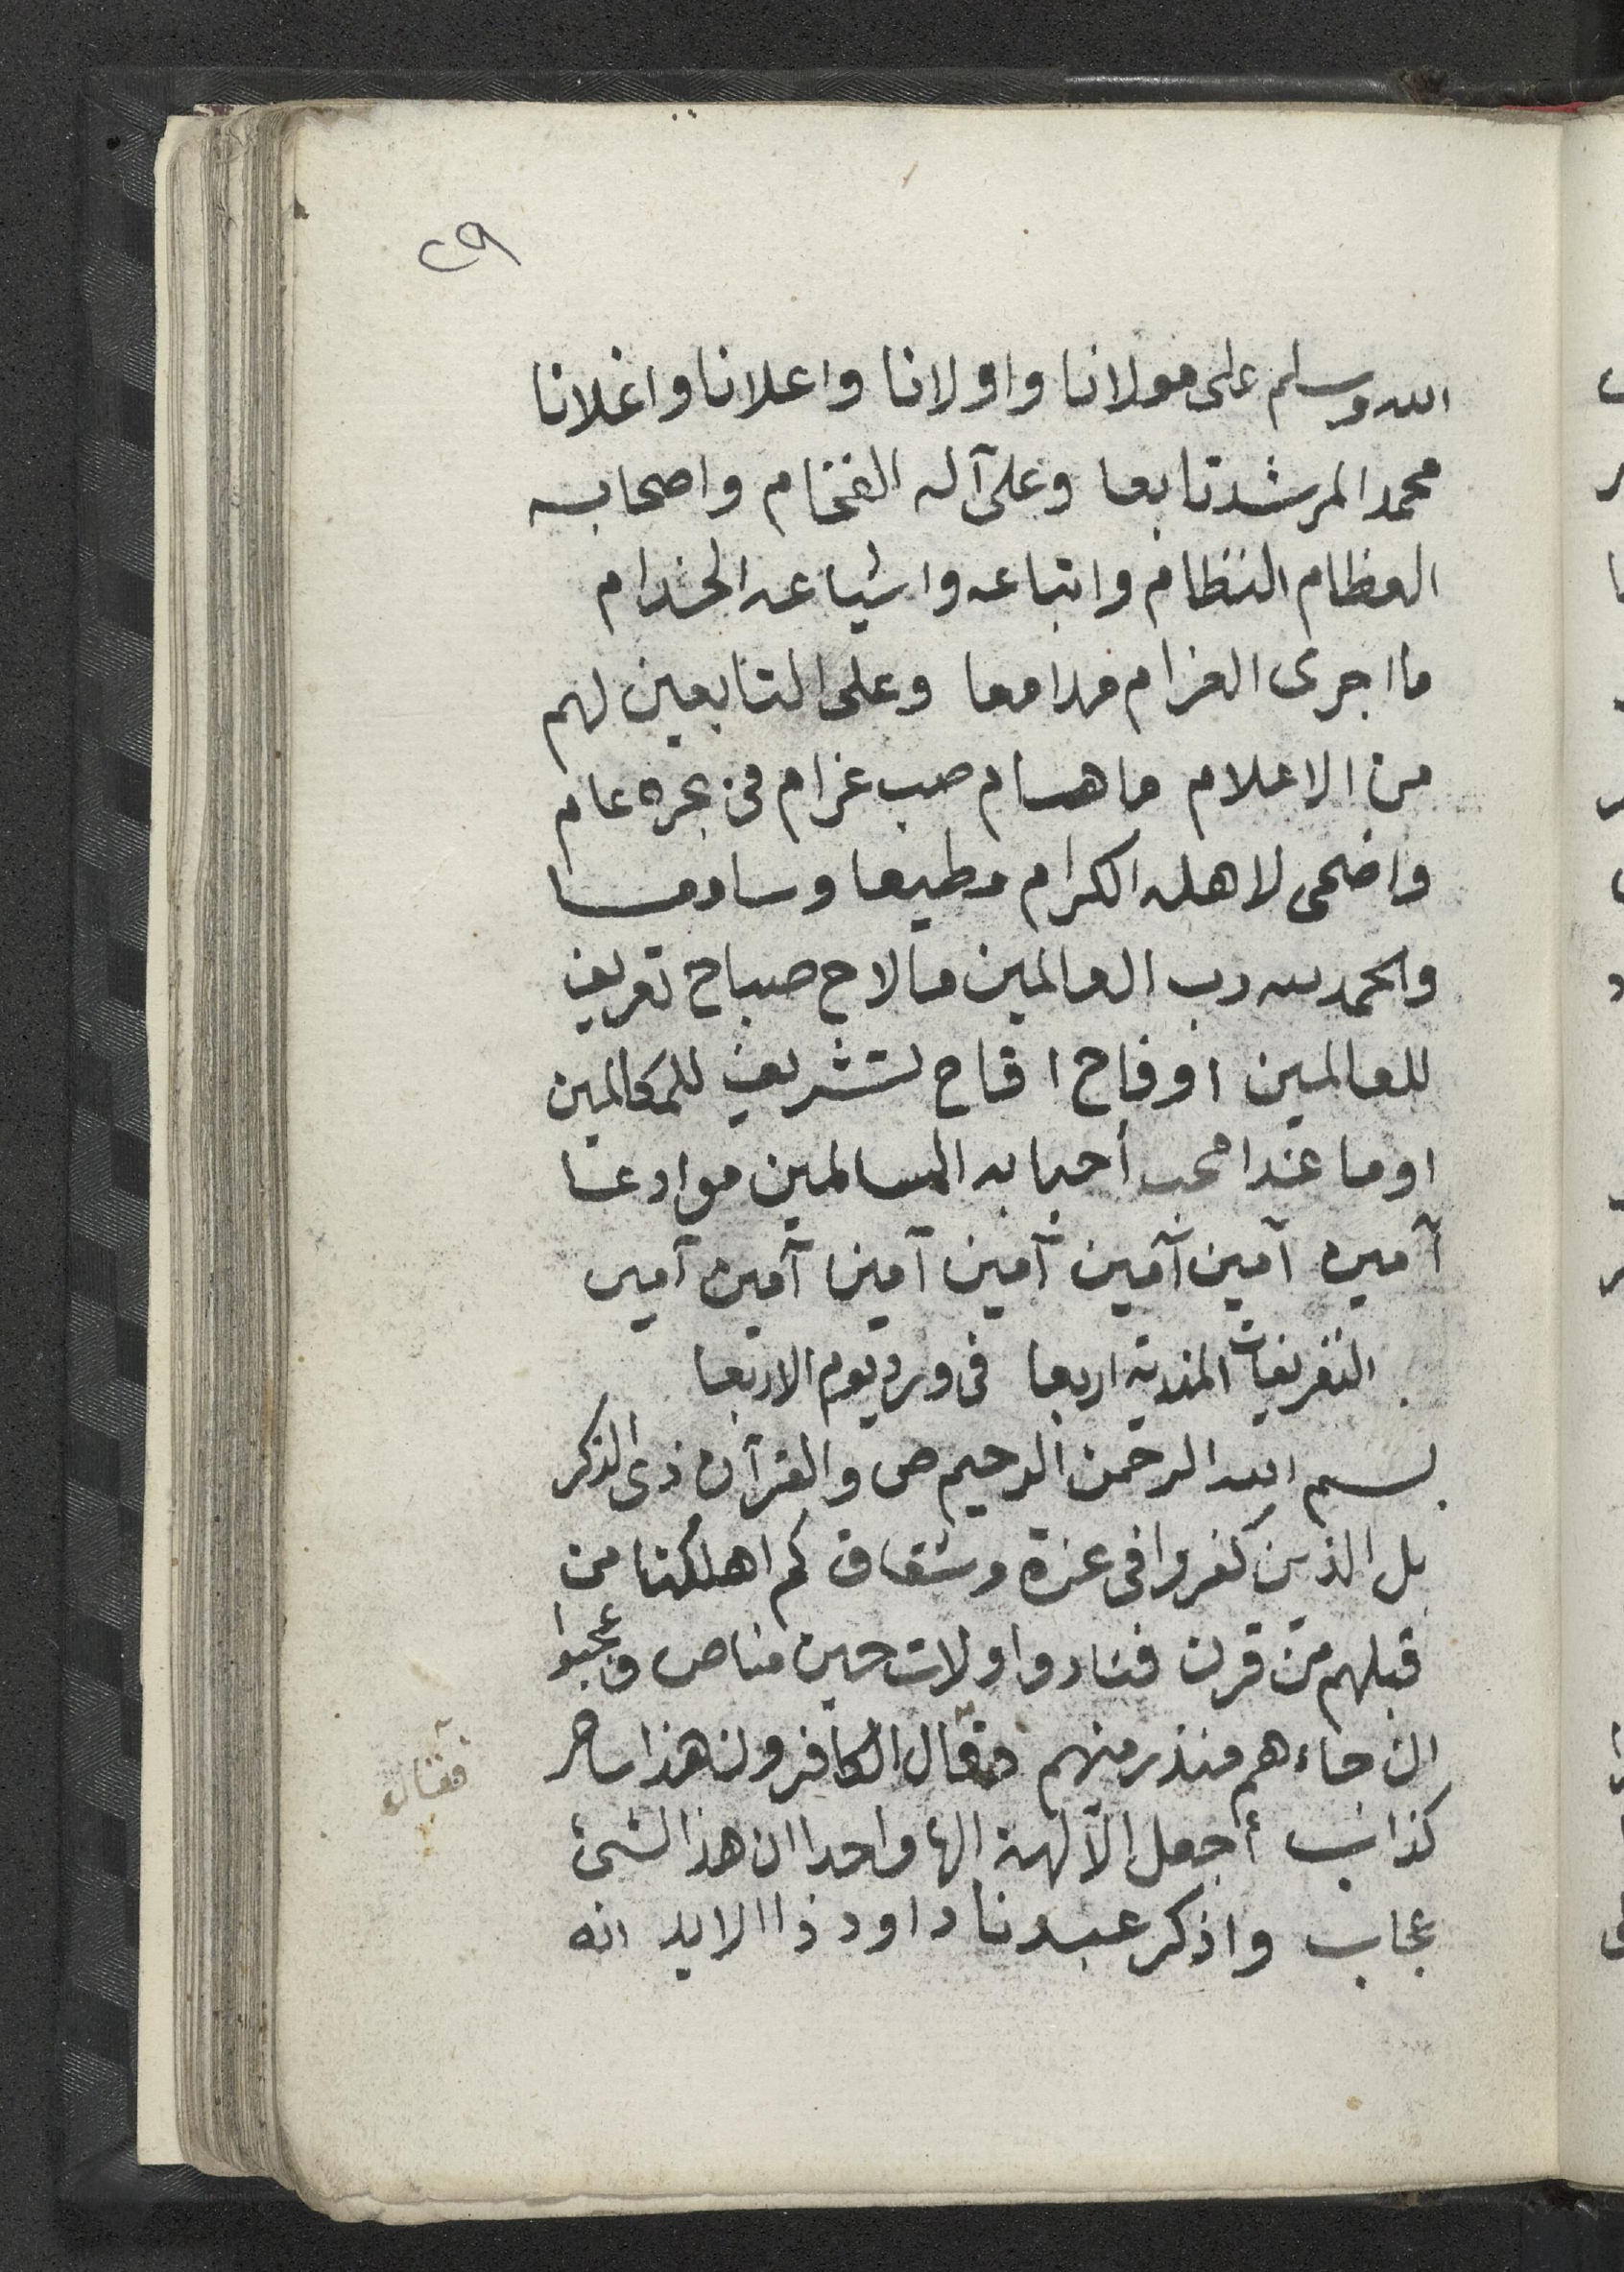 ٢٩
الله وسلم على مولانا واولانا واعلانا واغلانا
محمد المرشد تابعا وعلى آله الفخام واصحابه
العظام النظام واتباعه واشياعه الخدام
ما اجرى الغرام مدامعا وعلى التابعين لهم
من الاعلام ما هام صب غرام فى بحره عام
واضحى لاهله الكرام مطيعا وسامعا
والحمد لله رب العالمين ما لاح صباح تعريف
للعالمين او فاح اقاح تشريف للمكالمين
او ما غدا محب أحبابه المسالمين موادعا
آمين آمين آمين آمين آمين آمين آمين
التفريغات المندية اربعا فى ورد يوم الاربعا
بسم الله الرحمن الرحيم ص والقرآن ذى الذكر
بل الذين كفروا فى عزة وشقاق كم اهلكنا من
قبلهم من قرن فنادوا ولات حين مناص وعجبوا
ان جاءهم منذر منهم وقال الكافرون هذا ساحر
فقال
كذاب أجعل الآلهة الها واحدا ان هذا لشئ
عجاب واذكر عبدنا داود ذا الايد انه